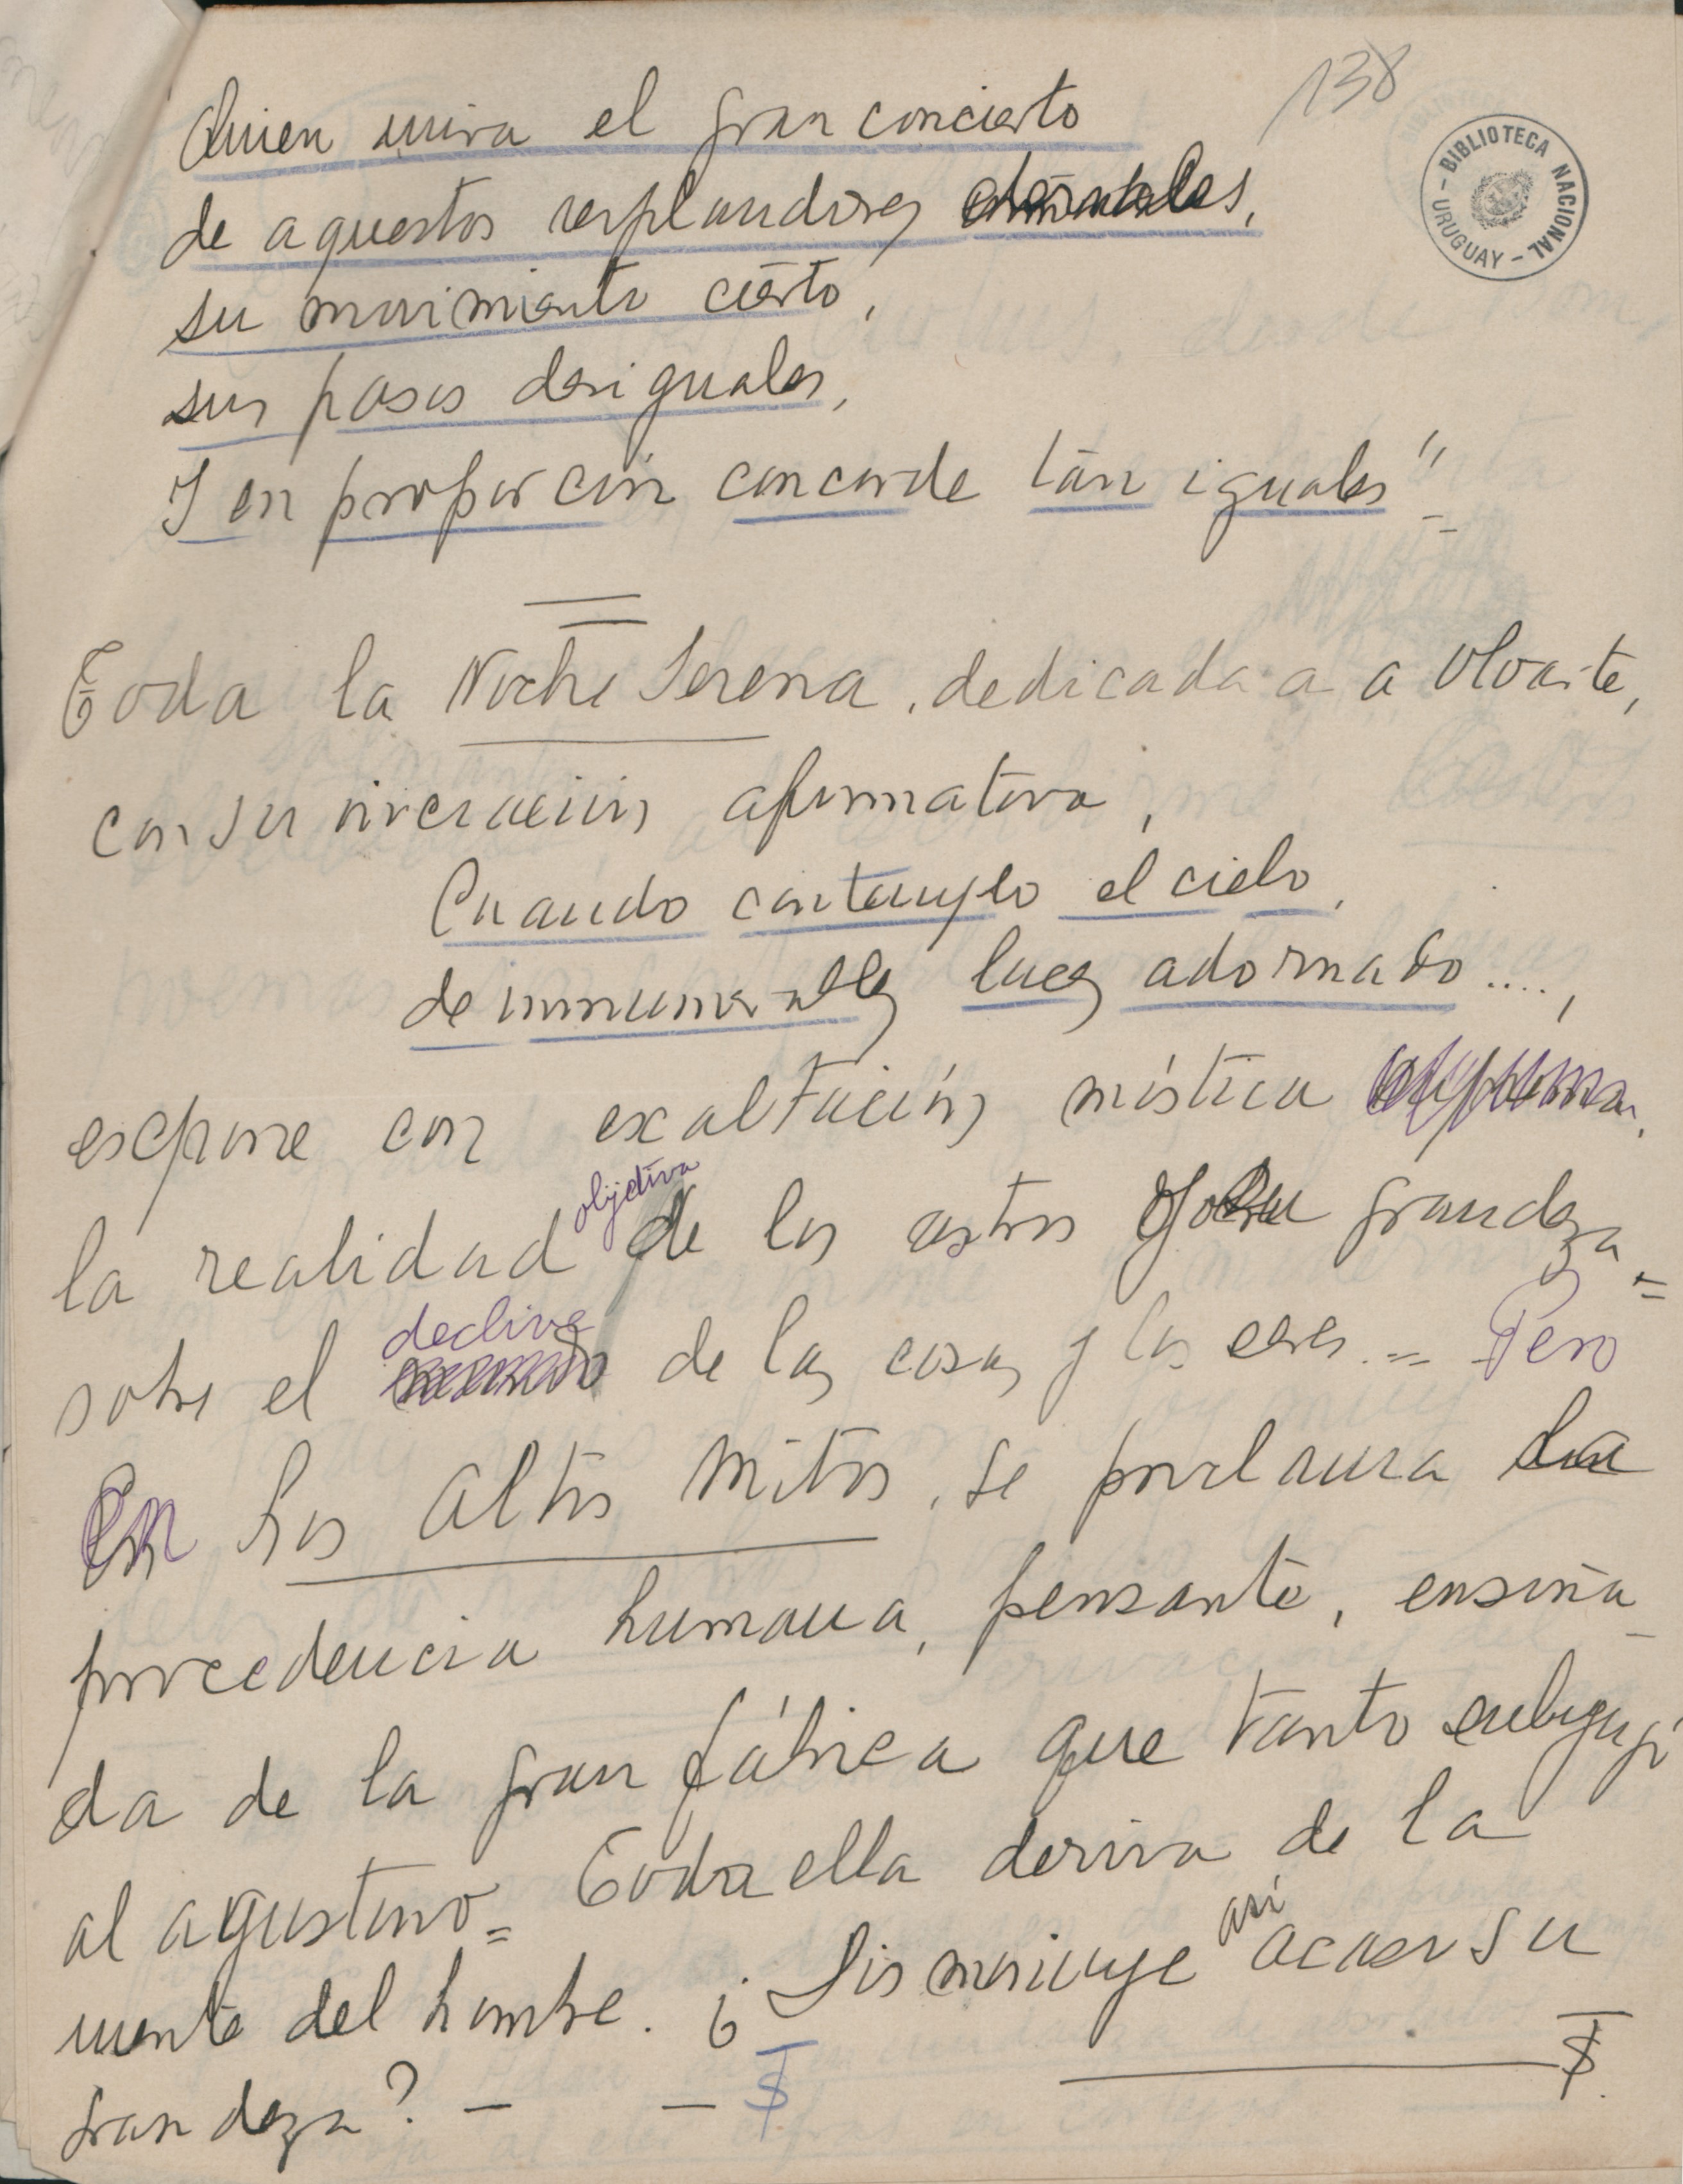 138
BIBLIOTECA NACIONAL
- URUGUAY -
Quien mira el gran concierto
de aquestos resplandores eternales,
su movimiento cierto,
sus pasos desiguales,
Y en proporción concorde tán iguales"
Toda la Noche Serena, dedicada a a Oloarte,
con su afirmativa,
Cuando contemplo el cielo,
de innumerables luces adornado....,
expone con exaltación mística suprema,
la realidad objetiva de los astros y su grandeza
sobre el declive de las cosas y los seres. = Pero
En Los Altos Mitos, se proclama la
procedencia humana, pensante, enseña-
da de la gran fábrica que tanto subyugó
al agustino = Toda ella deriva de la
mente del hombre. ¿ Disminuye así acaso su
grandeza? -